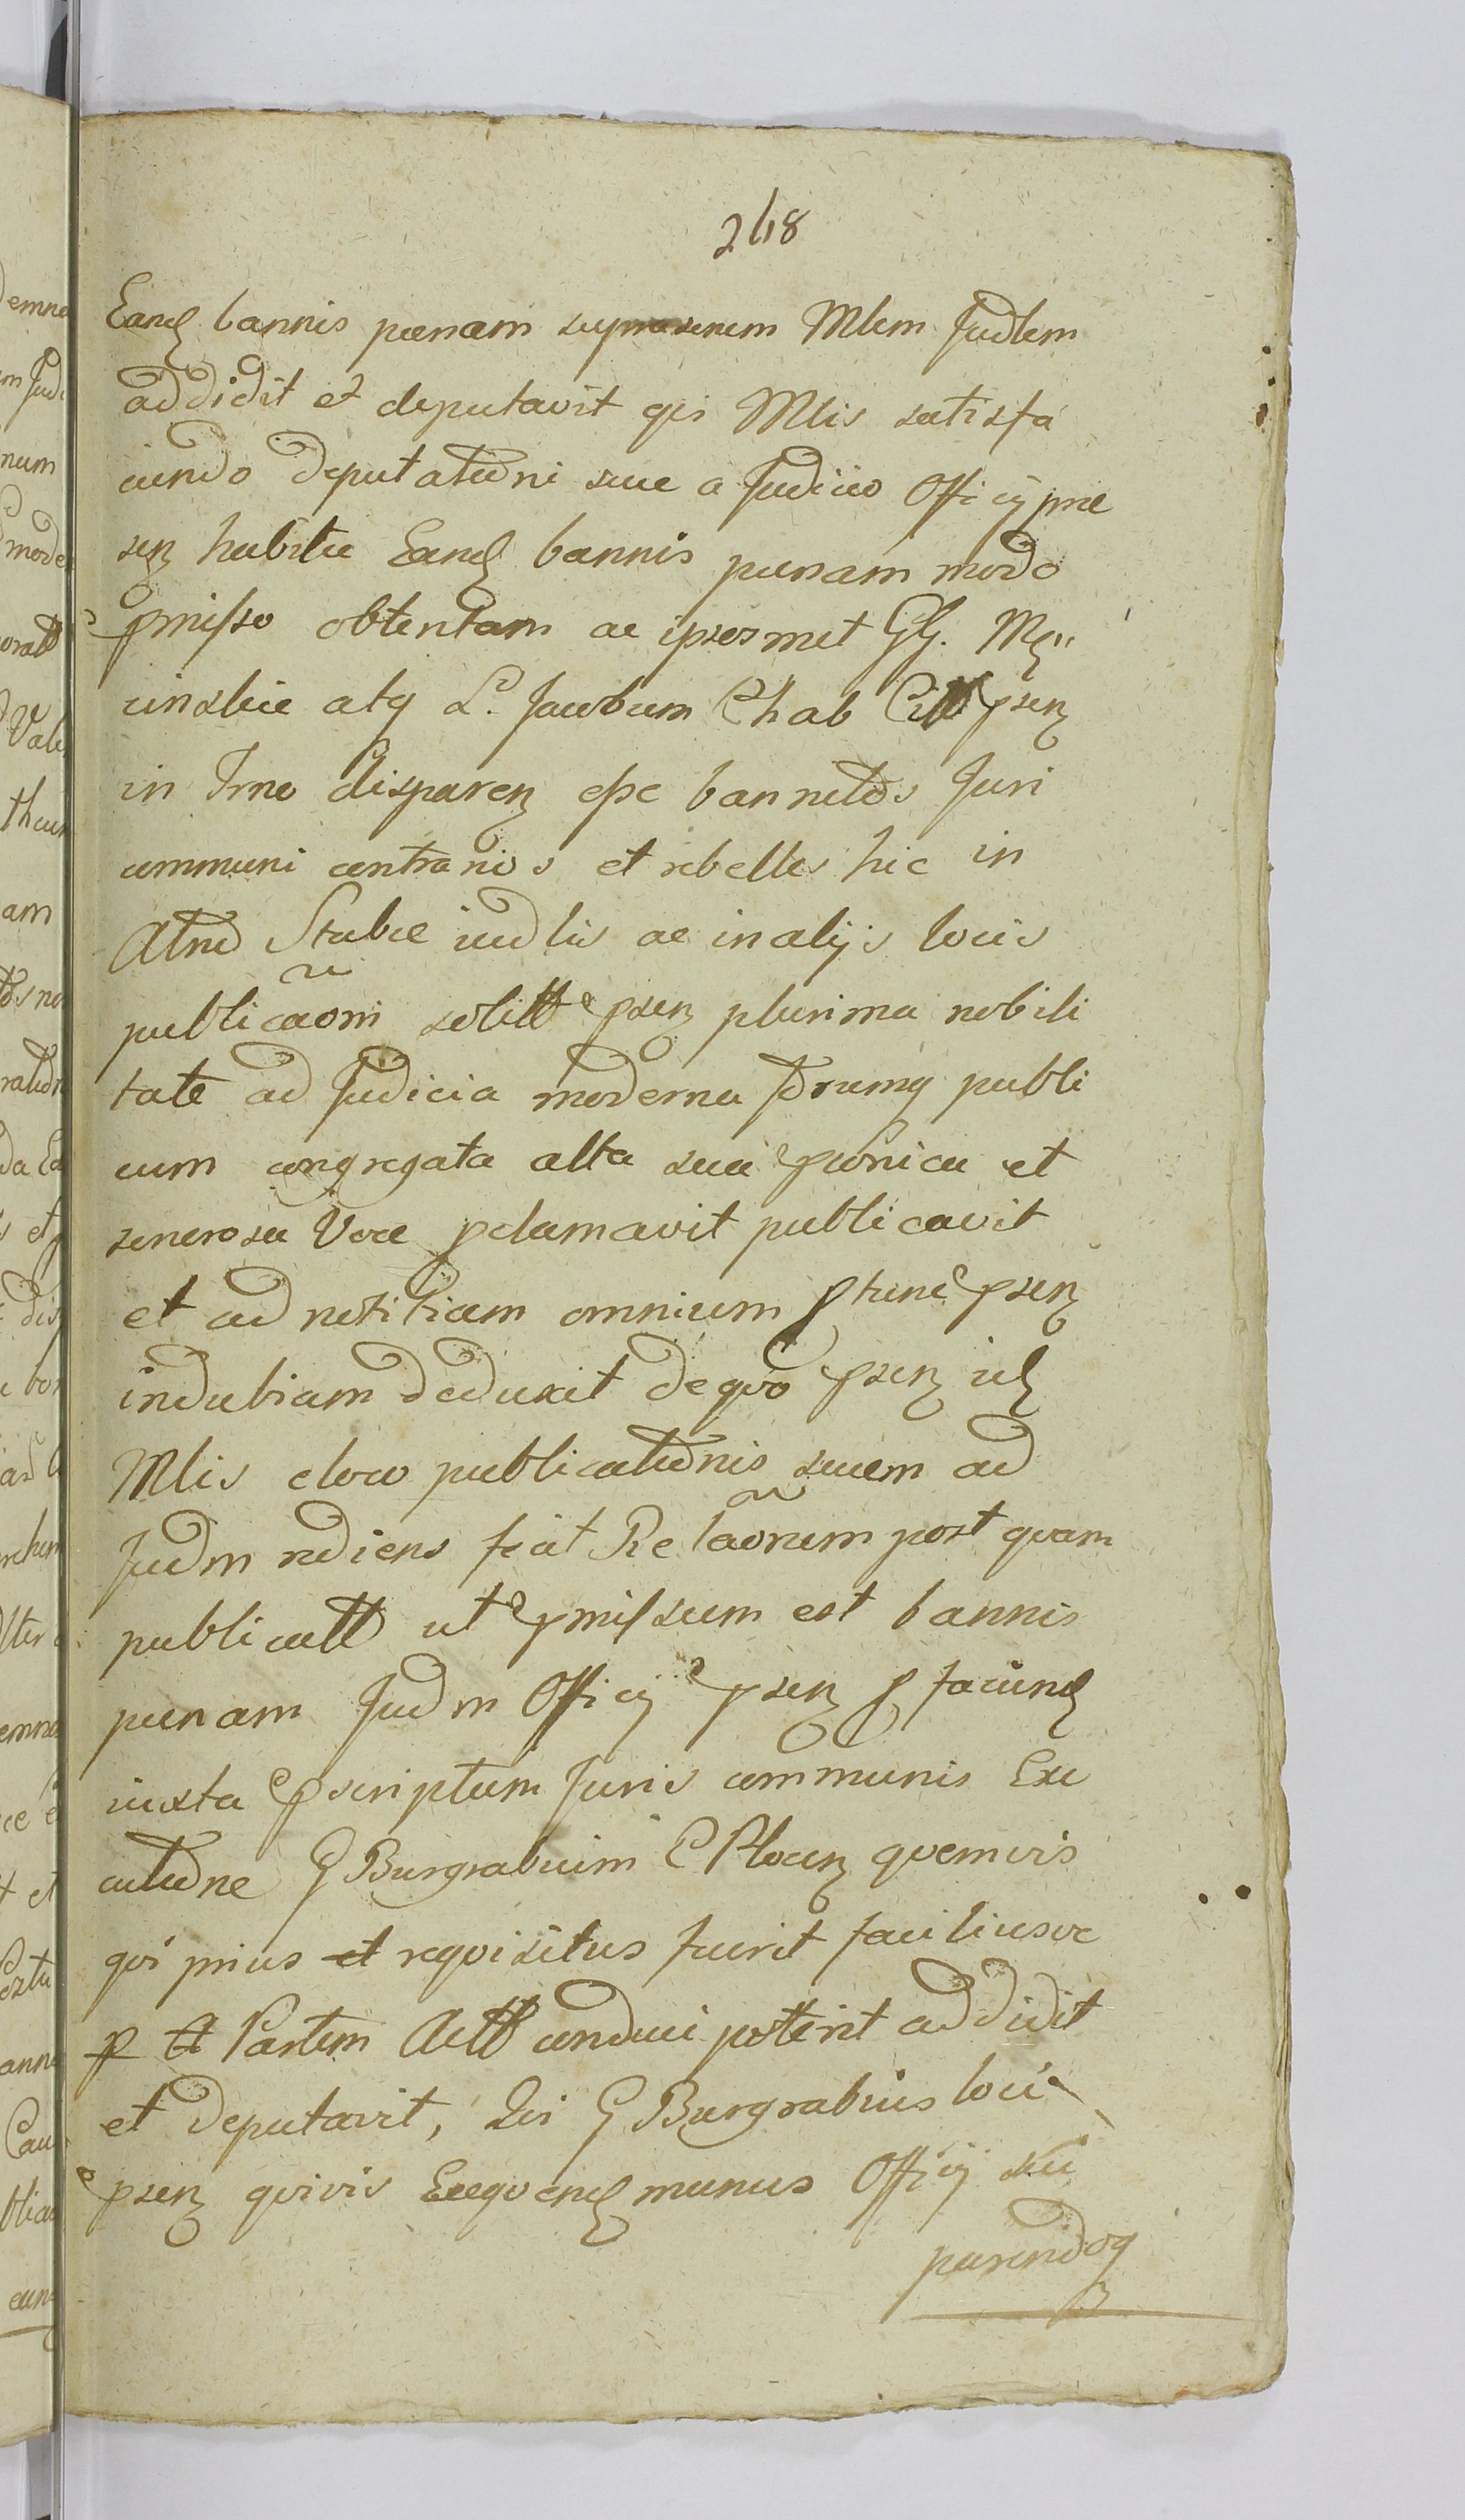 268
Eand bannis pœnam suprasenem Mlem Judlem
addidit et deputavit qui Mlis satisfa
ciendo deputationi suæ a Judicio Officij præ
sen habitæ Eand bannis pœnam modo
pmisso obtentam ac ipsos met GG.
atq L. Jacobum Chab Citt psen
in Trno disparen esse bannitos Juri
communi contrarios et rebelles hic in
Atrio Stubæ iudlis ac in alijs locis
publicaoni solitt psen plurima nobili
tate ad Judicia moderna forumq publi
cum congregata alta sua et
senerosa Voce pclamavit publicavit
et ad notitiam omnium ptunc psen
indubiam deduxit de quo psen id
Mlis eloco publicationis suæm ad
Judm rediens fecit Relaonem post quam
publicatt ut pmissum est bannis
pœnam Judm Officij psen p faciend
iuxta pscriptum Juris communis Exe
cutione G Burgrabium C Plocen quemvis
qui prius et requisitus fuerit faciliusve
p A Partem Actt conduci poterit addidit
et deputavit, Qui G Burgrabius loci
psen quivis Exequend munus Officij sui
parendoq